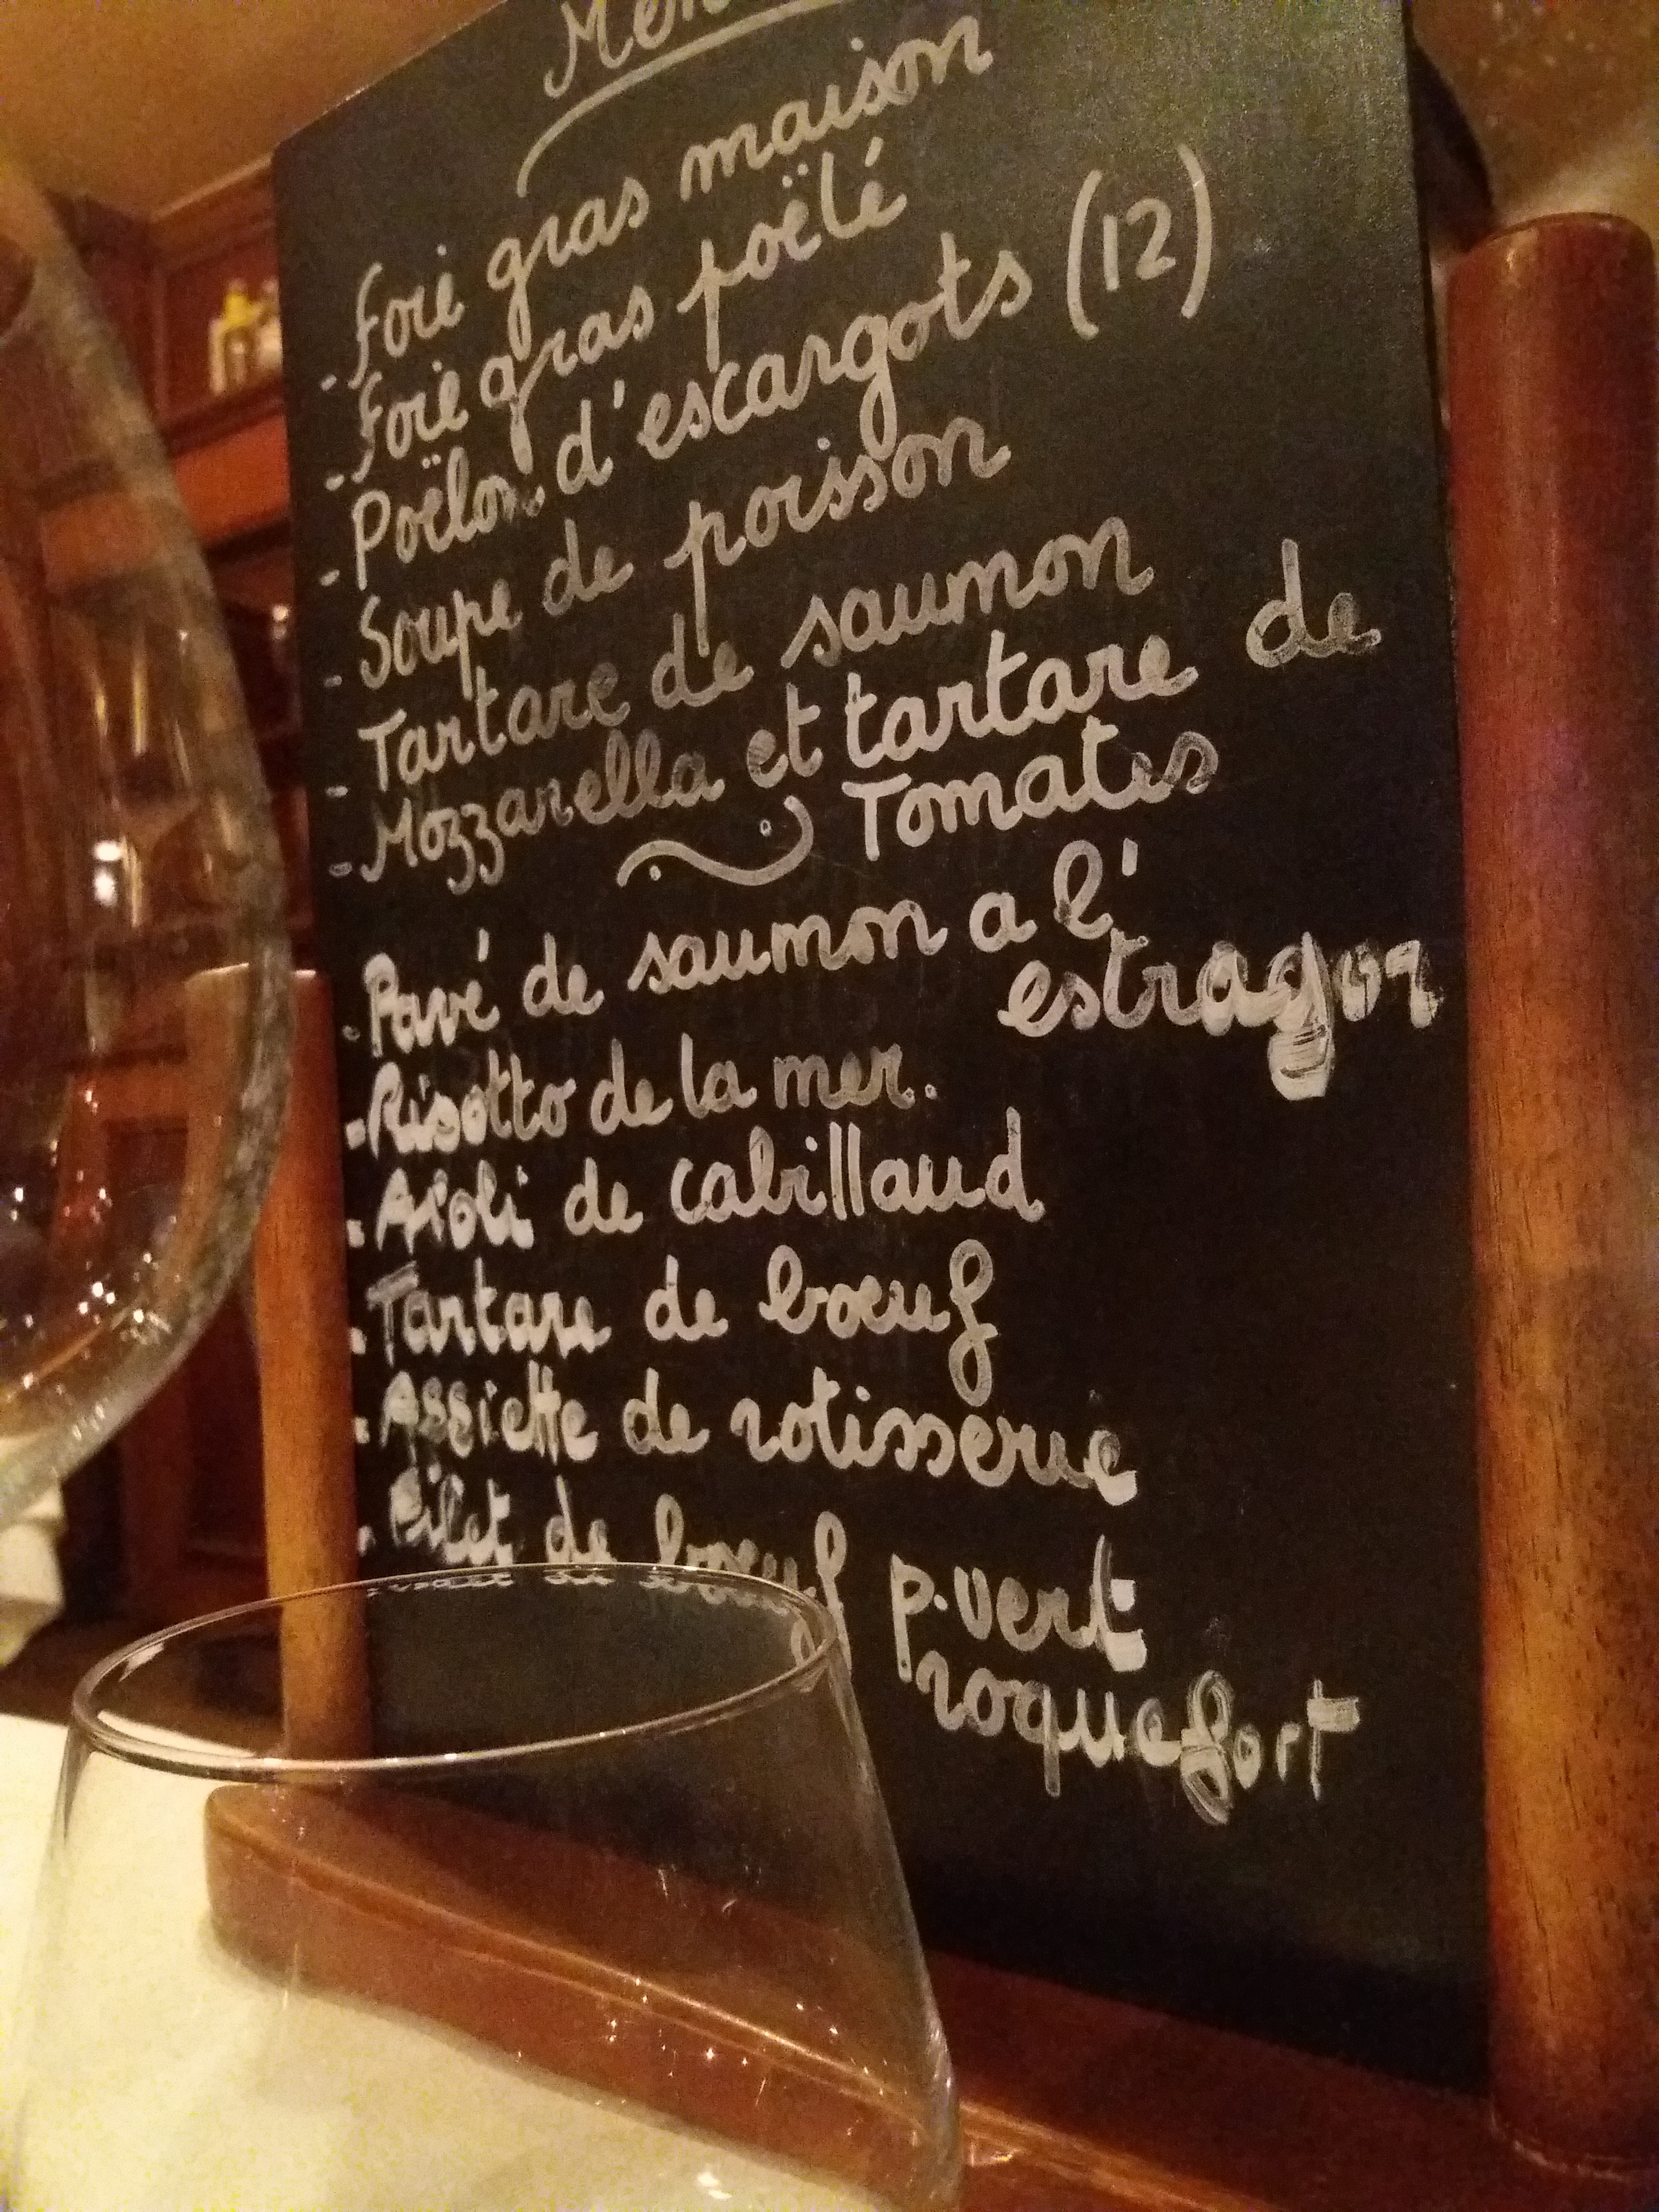 Menu
- Foie gras maison
- Foie gras poëlé
- Poëlon d'escargots (12)
- Soupe de poisson
- Tartare de saumon
- Mozzarella et tartare de
Tomates
- Pavé de saumon a l'
estragon
- Risotto de la mer.
- Aïoli de cabillaud
- Tartare de boeuf
- Assiette de rotisserie
- Filet de boeuf p.vert
roquefort